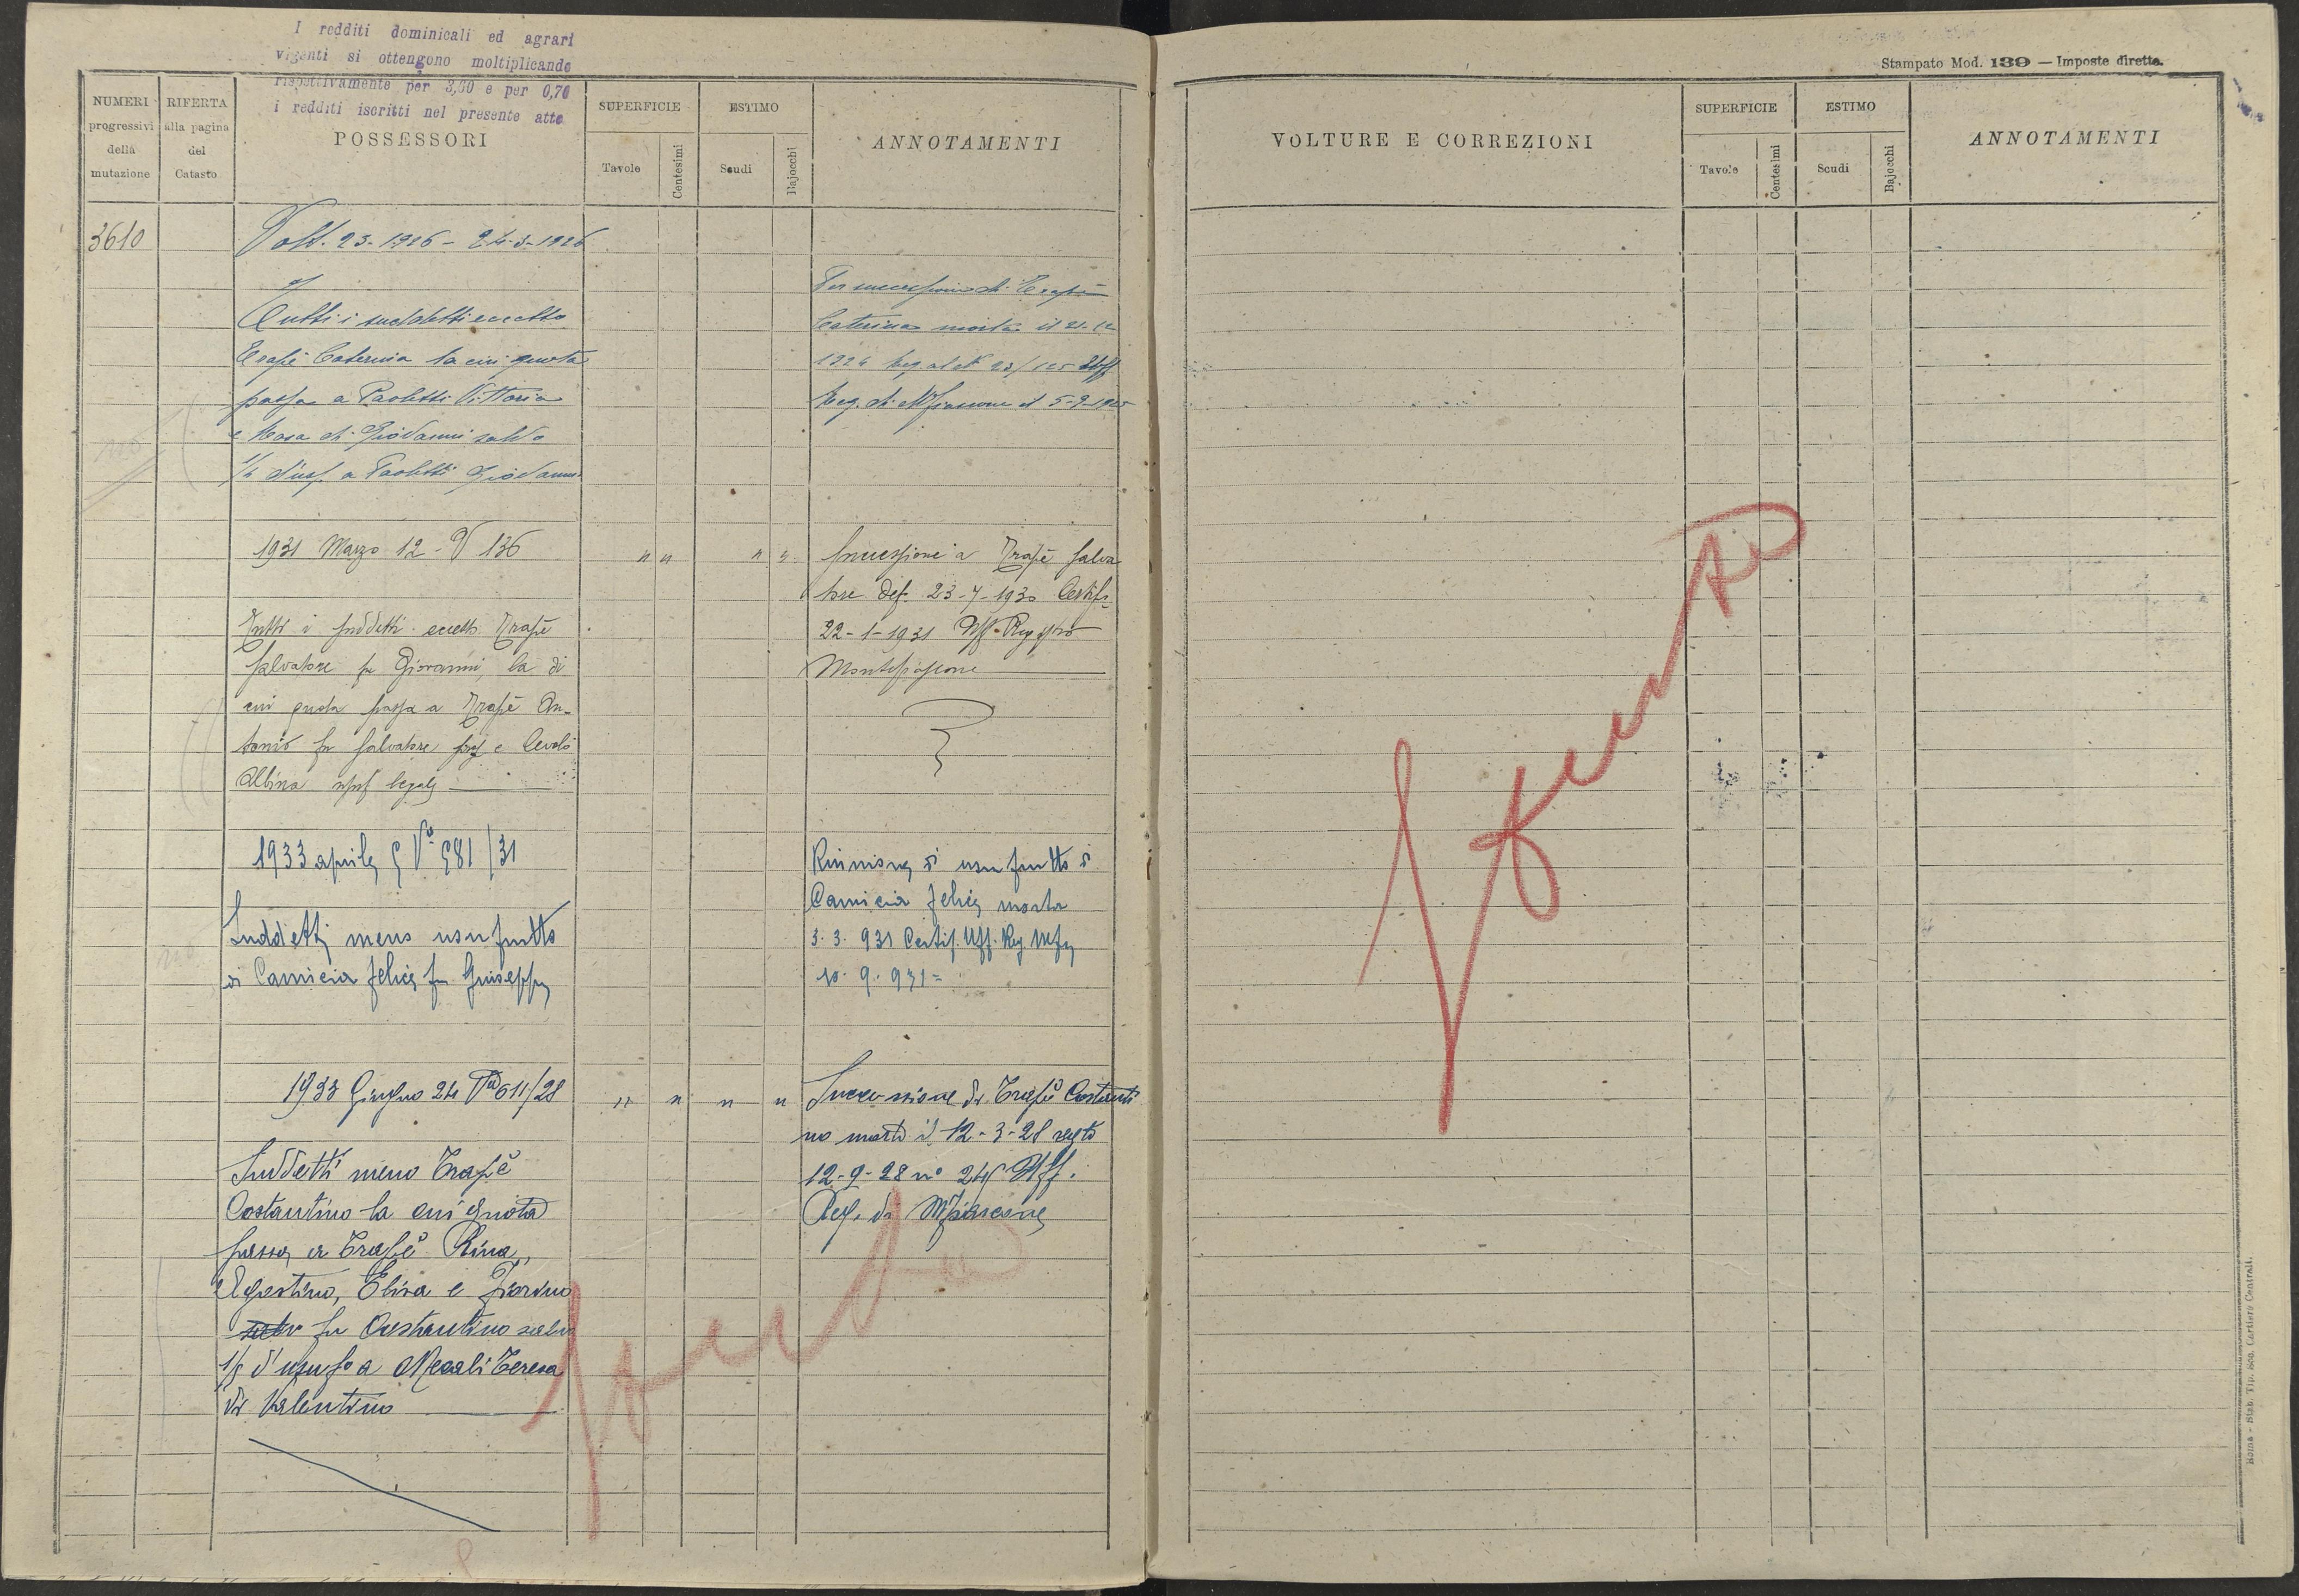 I redditi dominicali ed agrari
vigenti si ottengono moltiplicando
rispettivamente per 3,60 e per 0,70
i redditi iscritti nel presente atto
NUMERI
progressivi
della
mutazione
RIFERTA
alla pagina
del
Catasto
POSSESSORI
SUPERFICIE
Tavole
Centesimi
ESTIMO
Scudi
Bajocchi
ANNOTAMENTI
3610
Volt. 23-1926 - 24-3-1926
Tutti i suddetti eccetto
Trapè Caterina la cui quota
passa a Paoletti Vittoria
e Rosa di Giovanni salvo
d'usf. a Paoletti Giovanni
Per successione di Trapè
Caterina morta il 21-12
Reg. di Mfiascone il 5-9-1925
1931 Marzo 12 - V 136
Tutti i suddetti eccetto Trapè
Salvatore fu Giovanni, la di
cui quota passa a Trapè An-
tonio fu Salvatore prop e Cevolo
Albina usuf legale
" " " " Successione a Trapè Salva
tore def. 23-7-1930 Certif.
22-1-1931 Uff. Registro
Montefiascone
1933 aprile 9 V° 981/31
Suddetti meno usufrutto
di Camicia Felice fu Giuseppe
Riunione di usufrutto di
Camicia Felice morta
3.3.931 Certif. Uff. Reg. Mfne
10.9.931=
1933 Giugno 24 611/28
Suddetti meno Trapè
Costantino la cui quota
passa a Trapè Rina,
Agostino, Elisa e
fu Costantino salvo
d'usufo a Mecali Teresa
di Valentino
" " " " Successione di Trapè Costanti
no morto il 12-3-28 regto
12-9-28 n° Uff.
Reg. di Mfiascone
Stampato Mod. 139 — Imposte dirette.
VOLTURE E CORREZIONI
SUPERFICIE
Tavole
Centesimi
ESTIMO
Scudi
Bajocchi
ANNOTAMENTI
Roma - Stab. Tip. Soc. Cartiere Centrali.